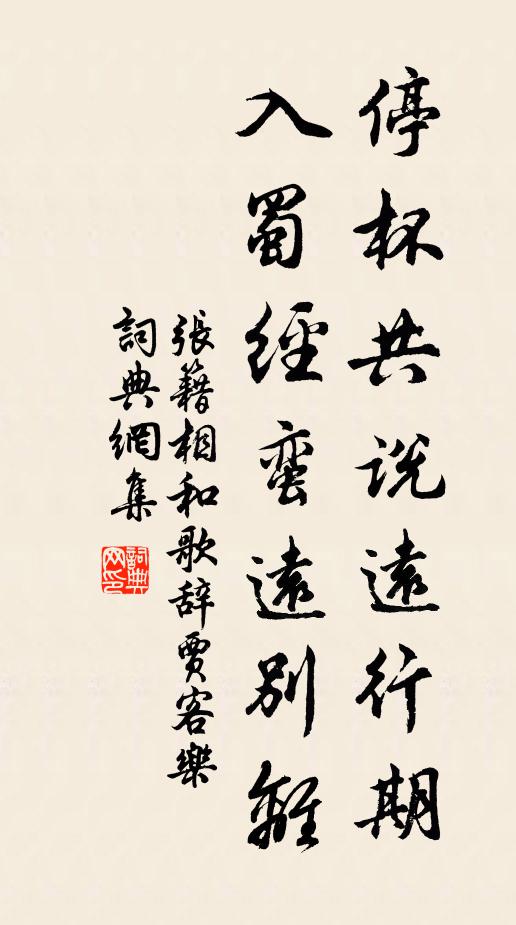 停杯共说遠行期
入蜀經蛮遠别離
張籍相和歌辞賈客樂
詞典網集
詞典网印